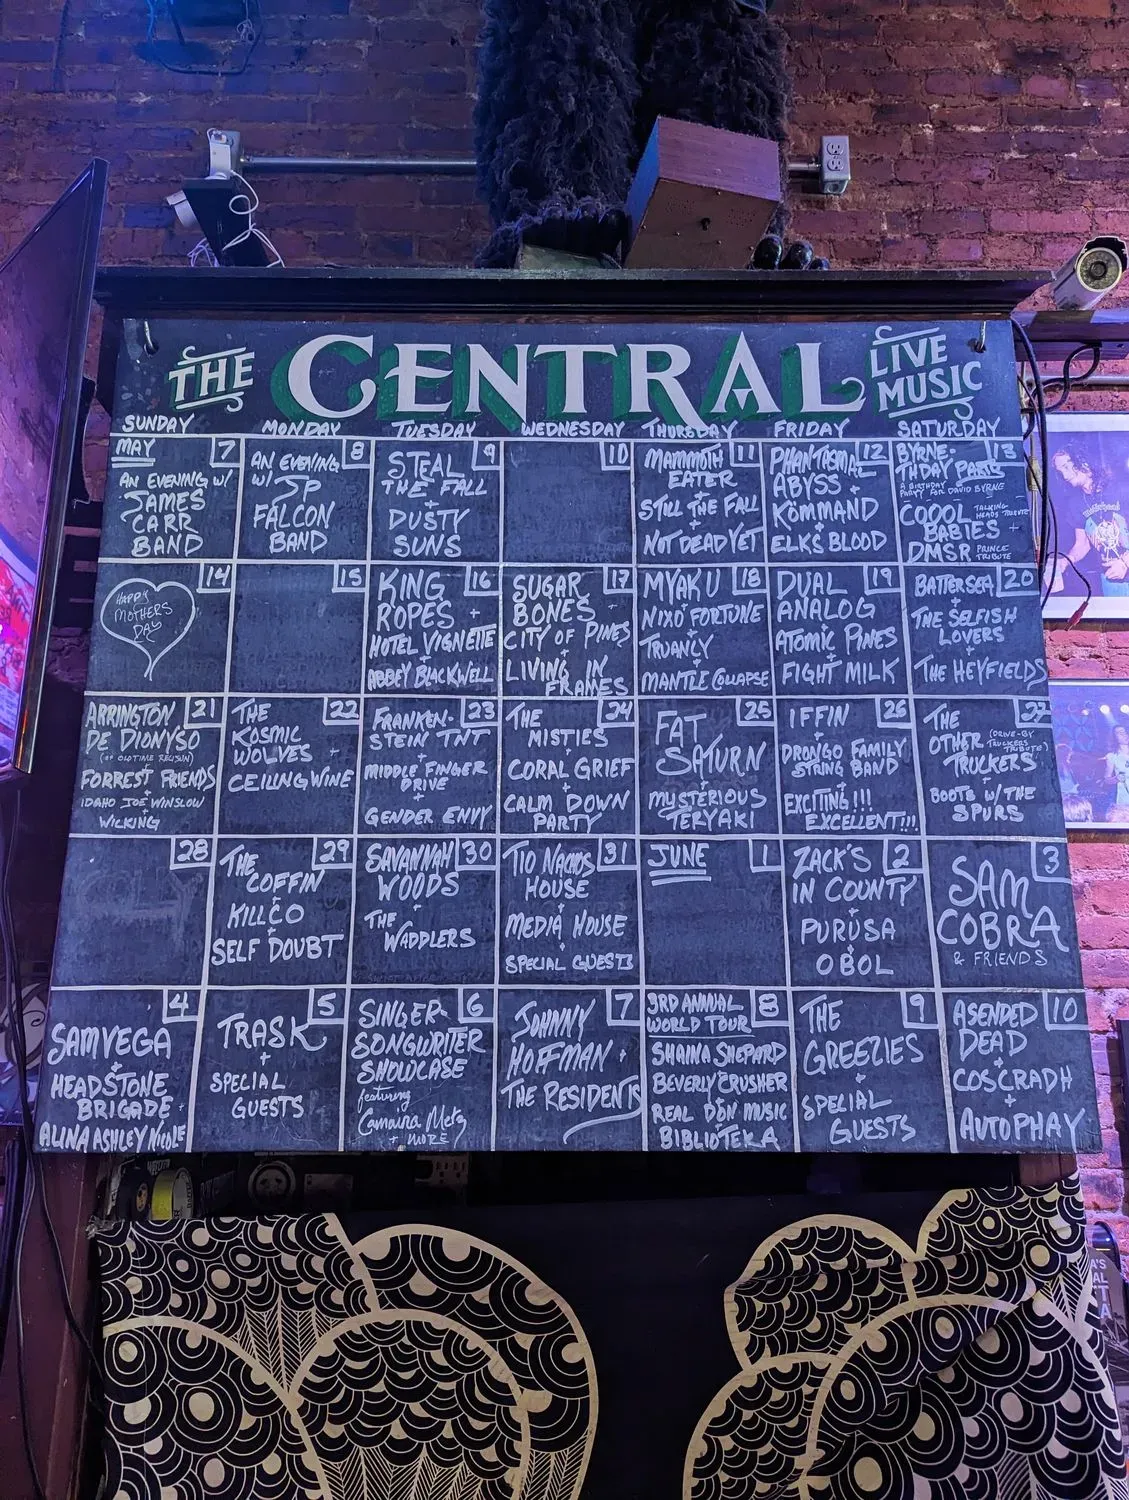 THE CENTRAL LIVE MUSIC
SUNDAY MONDAY TUESDAY WEDNESDAY THURSDAY FRIDAY SATURDAY
MAY 7
AN EVENING W/
JAMES
CARR
BAND
8
AN EVENING
W/ JP
FALCON
BAND
9
STEAL
THE FALL
+
DUSTY
SUNS
10
11
MAMMOTH
EATER
+
STILL THE FALL
+
NOT DEAD YET
12
PHANTASMA
ABYSS +
KÖMMAND
+
ELK'S BLOOD
13
BYRNE-
THDAY PARTY
A BIRTHDAY
PARTY FOR DAVID BYRNE
COOOL TALKING
HEADS TRIBUTE
BABIES +
DMSR PRINCE
TRIBUTE
14
HAPPY
MOTHERS
DAY
15
16
KING
ROPES +
HOTEL VIGNETTE
+
ABBEY BLACKWELL
17
SUGAR
BONES +
CITY OF PINES
+
LIVING IN
FRAMES
18
MYAKU
+
NIXO FORTUNE
+
TRUANCY
+
MANTLE COLLAPSE
19
DUAL
ANALOG
+
ATOMIC PINES
+
FIGHT MILK
20
BATTERSEA
+
THE SELFISH
LOVERS
+
THE HEYFIELDS
21
ARRINGTON
DE DIONYSO
(OF OLD TIME RELIJUN)
+
FORREST FRIENDS
+
IDAHO JOE WINSLOW
+
WILKING
22
THE
KOSMIC
WOLVES +
CEILING WINE
23
FRANKEN-
STEIN TNT
+
MIDDLE FINGER
DRIVE
+
GENDER ENVY
24
THE
MISTIES
+
CORAL GRIEF
+
CALM DOWN
PARTY
25
FAT
SATURN
+
MYSTERIOUS
TERYAKI
26
IFFIN
+
DRONGO FAMILY
STRING BAND
+
EXCITING!!!
EXCELLENT!!!
27
THE
OTHER (DRIVE-BY
TRUCKERS
TRIBUTE)
TRUCKERS
+
BOOTS W/ THE
SPURS
28
29
THE
COFFIN
+
KILLCO
+
SELF DOUBT
30
SAVANNAH
WOODS
+
THE
WADDLERS
31
TIO NACHOS
HOUSE
+
MEDIA HOUSE
+
SPECIAL GUESTS
JUNE 1
2
ZACK'S
IN COUNTY
+
PURUSA
+
OBOL
3
SAM
COBRA
& FRIENDS
4
SAMVEGA
+
HEADSTONE
BRIGADE +
ALINA ASHLEY NICOLE
5
TRASK
+
SPECIAL
GUESTS
6
SINGER-
SONGWRITER
SHOWCASE
featuring
Camaina Metz
+ MORE
7
JOHNNY
HOFFMAN +
THE RESIDENTS
8
3RD ANNUAL
WORLD TOUR
SHAINA SHEPARD
+
BEVERLY CRUSHER
+
REAL DON MUSIC
+
BIBLIOTEKA
9
THE
GREEZIES
+
SPECIAL
GUESTS
10
ASENDED
DEAD
+
COSCRADH
+
AUTOPHAY